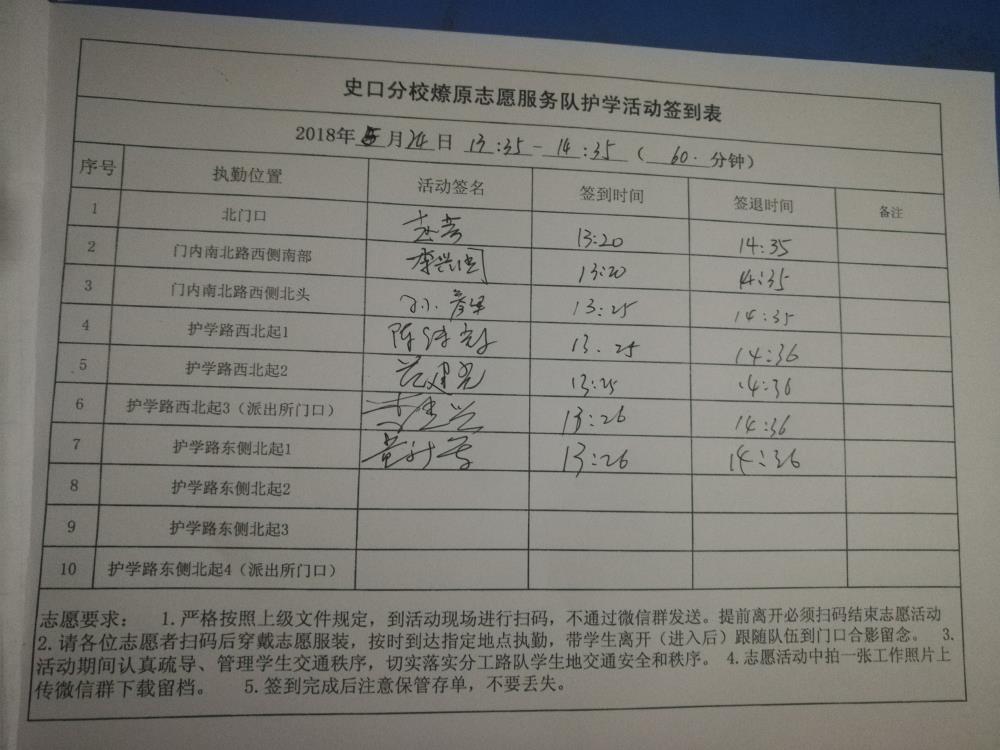 史口分校燎原志愿服务队护学活动签到表
2018年 5 月 24 日 13:35 - 14:35 ( 60. 分钟)
序号 执勤位置 活动签名 签到时间 签退时间 备注
1 北门口 13:20 14:35
2 门内南北路西侧南部 13:20 14:35
3 门内南北路西侧北头 13:25 14:35
4 护学路西北起1 13.25 14:36
5 护学路西北起2 范建光 13:25 14:36
6 护学路西北起3（派出所门口） 13:26 14:36
7 护学路东侧北起1 13:26 14:36
8 护学路东侧北起2
9 护学路东侧北起3
10 护学路东侧北起4（派出所门口）
志愿要求： 1.严格按照上级文件规定，到活动现场进行扫码，不通过微信群发送。提前离开必须扫码结束志愿活动
2.请各位志愿者扫码后穿戴志愿服装，按时到达指定地点执勤，带学生离开（进入后）跟随队伍到门口合影留念。 3.
活动期间认真疏导、管理学生交通秩序，切实落实分工路队学生地交通安全和秩序。 4.志愿活动中拍一张工作照片上
传微信群下载留档。 5.签到完成后注意保管存单，不要丢失。